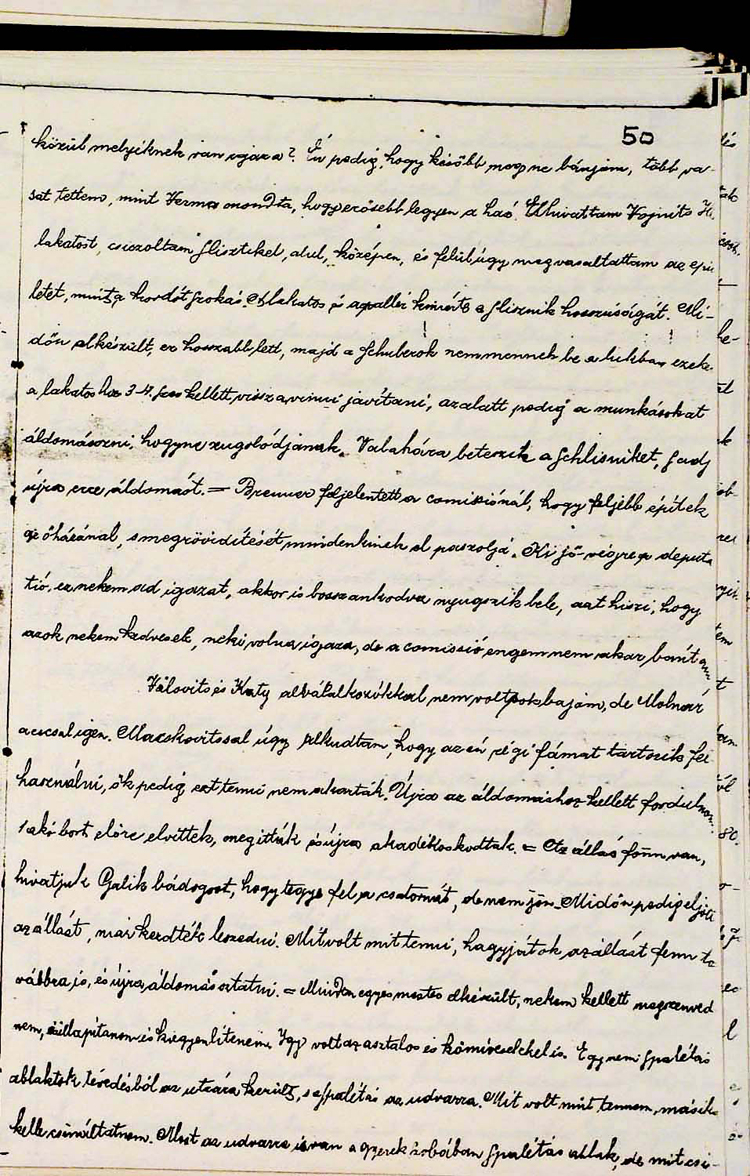 50
közül melyiknek van igaza? Én pedig, hogy később meg ne bánjam, több va-
sat tettem, mint Verma mondta, hogy erősebb legyen a ház. Elhivattam Vojnits
lakatost, csináltam slisztiket, alul, középen, és felül úgy megvasaltattam az épü
letet, mint a hordót szokás. A lakatos és a pallér kimérte a slisznik hosszúságát. Mi-
dőn elkészült, ez hosszabb lett, majd a Schuberok nem mennek be a lukban, ezeke
a lakatoshoz 3-4-szer kellett vissza vinni javítani, azalatt pedig a munkásokat
áldomásozni, hogy ne zugolódjanak. Valahára beteszik a schlisniket,
újra erre áldomást. = Brenner feljelentett a comissiónál, hogy feljebb építek
az ő házánál, s megrövidítését mindenkinek el paszolja. Ki jő végre a deputá
tió, ez nekem ad igazat, akkor is bosszankodva nyugszik bele, azt hiszi, hogy
azok nekem kedvesek, neki volna igaza, de a comissió engem nem akar bántani
Válovits és Katy alvállalkozókkal nem volt sok bajom, de Molnár
a ácscsal igen. Macskovitssal úgy alkudtam, hogy az én régi fámat tartozik fel
használni, ők pedig ezt tenni nem akarták. Újra az áldomáshoz kellett fordulnom.
1 akó bort előre elvittek, megitták és újra akadékoskodtak. = Az állás fönn van,
hivatjuk Galik bádogost, hogy tegye fel a csatornát, de nem jön. Midőn pedig eljött
az állást, már kezdték leszedni. Mit volt mit tenni, hagyjátok az állást fenn to
vábbra is, és újra áldomás osztatni. = Minden egyes mester elkészült, nekem kellett megszenved
nem, szállapítanom és kiegyenlítenem. Így volt az asztalos és kőművesekkel is. Egy nem spalétás
ablaktok tévedésből az utcára került, s a spalétás az udvarra. Mit volt mit tennem, másik
kelle csináltatnom. Most az udvarra is van a gyerek szobában spalétás ablak, de mit csi-